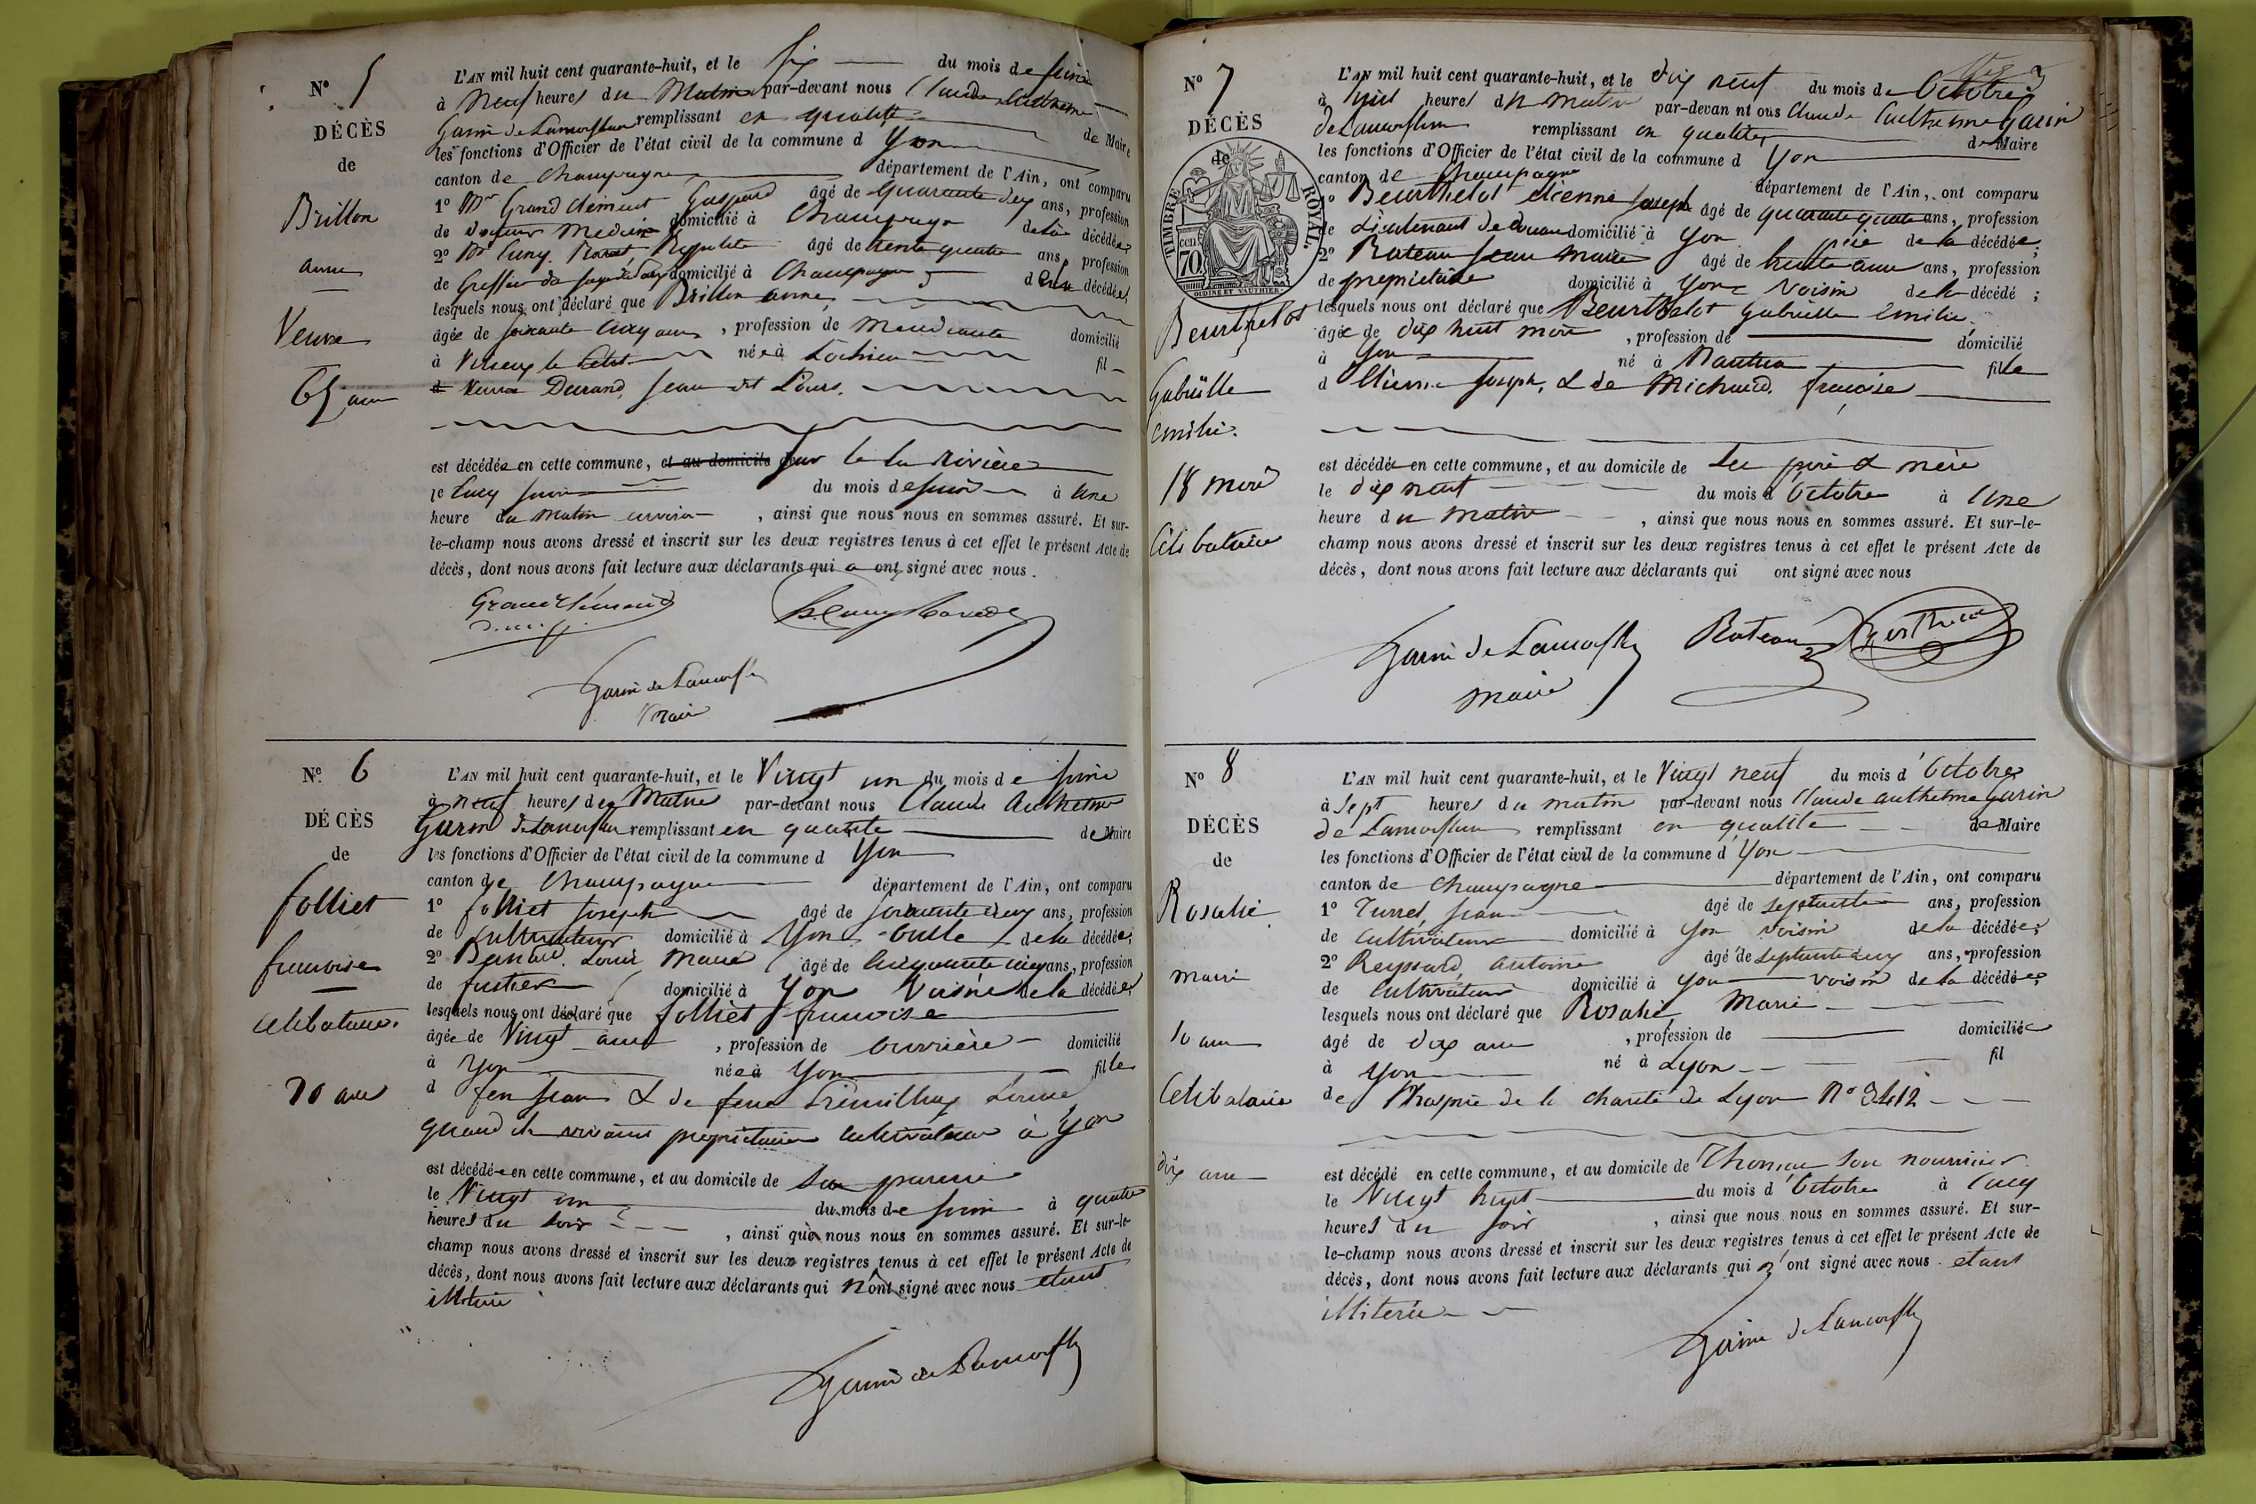 N° 5
DÉCÈS
de
Brillon
anne
Veuve
65 ans
L'AN mil huit cent quarante-huit, et le six du mois de juin
à neuf heures du Matin par-devant nous Claude Anthelme
Garin de Lamorflan remplissant en qualité de Maire
les fonctions d'Officier de l'état civil de la commune d Yon
canton de Champagne département de l'Ain, ont comparu
1° Mr Grand Clément Gaspard âgé de quarante deux ans, profession
de Docteur Medecin domicilié à Champagne de la décédée
2° Mr Cuny Ravet Hyppolite âgé de trente quatre ans, profession
de Greffier de domicilié à Champagne d décédée
lesquels nous ont déclaré que Brillon anne
âgée de soixante cinq ans, profession de Mendiante domicilié
à Virieux le Petit née à Lochieu fil
Veuve Durand, Jean dit L'ours.
est décédée en cette commune, et au domicile de sur la Rivière
le cinq juin du mois de juin à une
heure du matin environ, ainsi que nous nous en sommes assuré. Et sur-
le-champ nous avons dressé et inscrit sur les deux registres tenus à cet effet le présent Acte de
décès, dont nous avons fait lecture aux déclarants qui ont signé avec nous.
Grand Clément
Garin de Lamorflan
Maire
N° 6
DÉCÈS
de
folliet
francoise
Celibataire.
20 ans
L'AN mil huit cent quarante-huit, et le Vingt un du mois de juin
à neuf heures du Matin par-devant nous Claude Anthelme
Garin de Lamorflan remplissant en qualité de Maire
les fonctions d'Officier de l'état civil de la commune d Yon
canton de Champagne département de l'Ain, ont comparu
1° folliet Joseph âgé de soixante deux ans, profession
de Cultivateur domicilié à Yon de la décédée;
2° Louis Marie âgé de cinquante cinq ans, profession
de domicilié à Yon Voisin de la décédée;
lesquels nous ont déclaré que folliet francoise
âgée de Vingt ans, profession de Ouvrière domicilié
à Yon née à Yon fille
d feu Jean & de feue Louise
quand ils vivaient propriétaires cultivateurs à Yon
est décédée en cette commune, et au domicile de
le Vingt un du mois de juin à quatre
heures du soir, ainsi que nous nous en sommes assuré. Et sur-le-
champ nous avons dressé et inscrit sur les deux registres tenus à cet effet le présent Acte de
décès, dont nous avons fait lecture aux déclarants qui n'ont signé avec nous étant
Garin de Lamorflan
N° 7
DÉCÈS
de
TIMBRE ROYAL.
70 cen
OUDINE ET VAUTHIER
Beurthelot
Gabrielle
Emilie.
18 mois
Célibataire
L'AN mil huit cent quarante-huit, et le dix neuf du mois de Octobre
à huit heures du matin par-devan nt ous Claude Anthelme Garin
de Lamorflan remplissant en qualité de Maire
les fonctions d'Officier de l'état civil de la commune d Yon
canton de Champagne département de l'Ain, ont comparu
1° Beurthelot étienne Joseph âgé de quarante quatre ans, profession
de Lieutenant de Douane domicilié à Yon père de la décédée;
2° Rateau Jean Marie âgé de trente ans, profession
de propriétaire domicilié à Yon Voisin de la décédé;
lesquels nous ont déclaré que Beurthelot Gabrielle Emilie
âgée de dix huit mois, profession de domicilié
à Yon né à Nantua fille
d Etienne Joseph, & de Michaud, francoise
est décédée en cette commune, et au domicile de Ses père & mère
le dix neuf du mois d Octobre à Une
heure du matin, ainsi que nous nous en sommes assuré. Et sur-le-
champ nous avons dressé et inscrit sur les deux registres tenus à cet effet le présent Acte de
décès, dont nous avons fait lecture aux déclarants qui ont signé avec nous
Garin de Lamorflan Rateau
Maire
N° 8
DÉCÈS
de
Rosalie
marie
10 ans
Celibataire
dix ans
L'AN mil huit cent quarante-huit, et le Vingt neuf du mois d'Octobre
à sept heures du matin par-devant nous Claude anthelme Garin
de Lamorflan remplissant en qualité de Maire
les fonctions d'Officier de l'état civil de la commune d Yon
canton de Champagne département de l'Ain, ont comparu
1° Jean âgé de septante ans, profession
de Cultivateur domicilié à Yon voisin de la décédée;
2° Reyssard, antoine âgé de septante deux ans, profession
de Cultivateur domicilié à Yon voisin de la décédée;
lesquels nous ont déclaré que Rosalie, Marie
âgé de dix ans, profession de domiciliée
à Yon né à Lyon fil
de l'hospice de la charité de Lyon N° 3412
est décédé en cette commune, et au domicile de son nourricier
le Vingt huit du mois d'Octobre à cinq
heures du soir, ainsi que nous nous en sommes assuré. Et sur-
le-champ nous avons dressé et inscrit sur les deux registres tenus à cet effet le présent Acte de
décès, dont nous avons fait lecture aux déclarants qui n'ont signé avec nous étant
Garin de Lamorflan